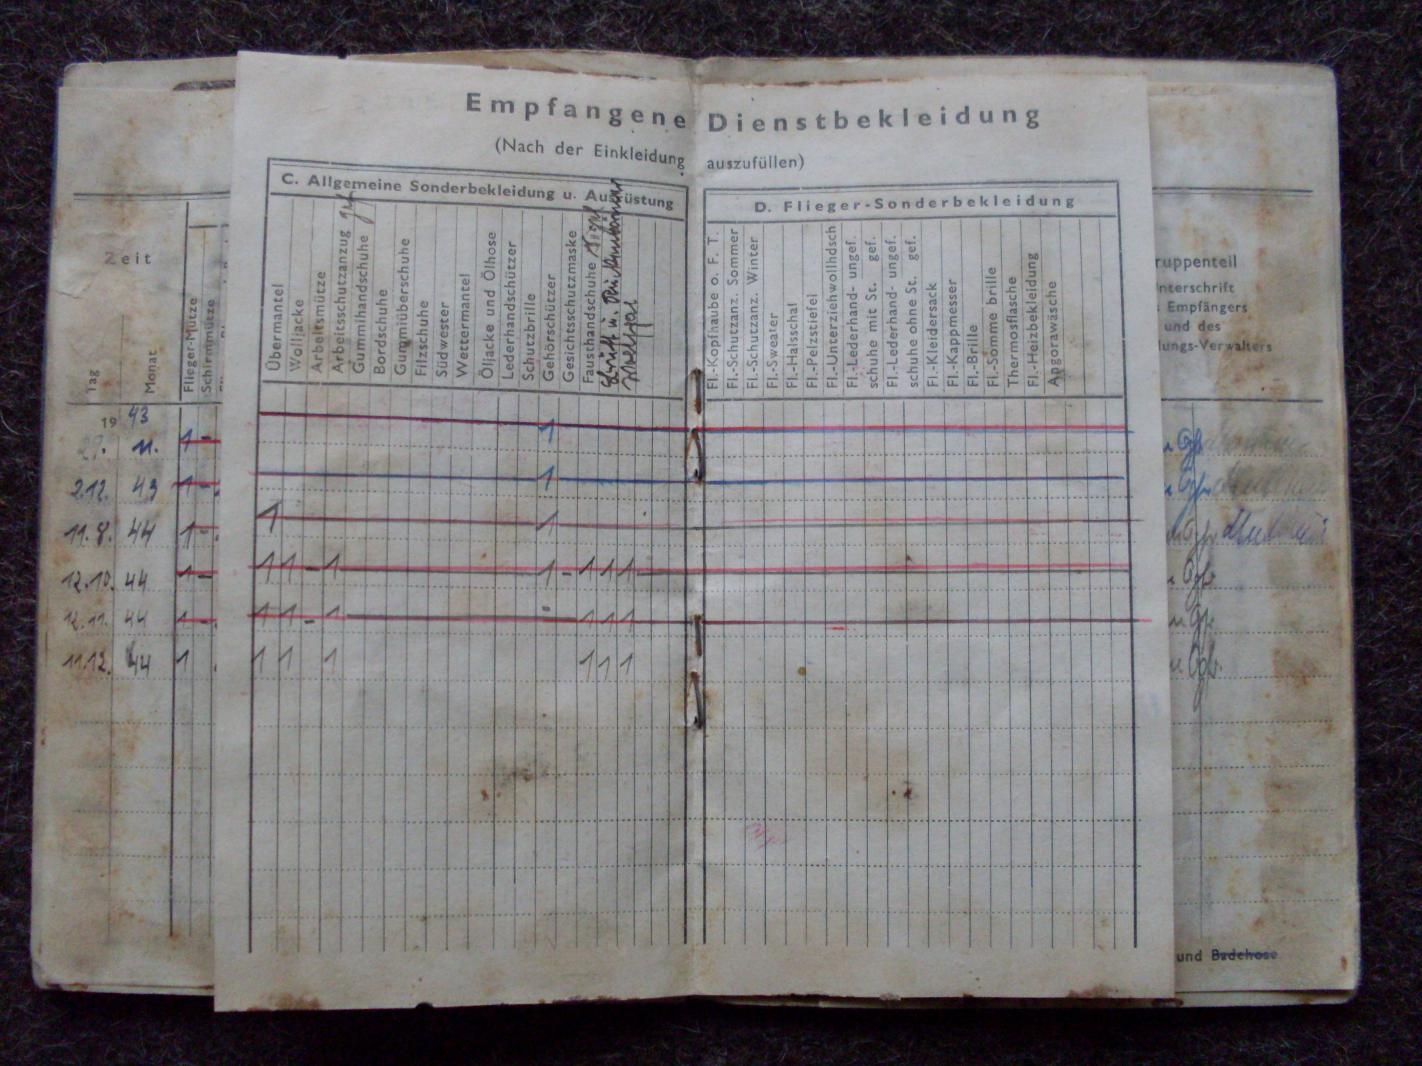 Empfangene Dienstbekleidung
(Nach der Einkleidung auszufüllen)
C. Allgemeine Sonderbekleidung u. Ausrüstung
D. Flieger-Sonderbekleidung
Zeit
Tag
Monat
Flieger-Mütze
Schirmmütze
Übermantel
Wolljacke
Arbeitsmütze
Arbeitsschutzanzug
Gummihandschuhe
Bordschuhe
Gummiüberschuhe
Filzschuhe
Südwester
Wettermantel
Öljacke und Ölhose
Lederhandschützer
Schutzbrille
Gehörschützer
Gesichtsschutzmaske
Fausthandschuhe
Fl.-Kopfhaube o. F. T.
Fl.-Schutzanz. Sommer
Fl.-Schutzanz. Winter
Fl.-Sweater
Fl.-Halsschal
Fl.-Pelzstiefel
Fl.-Unterziehwollhdsch
Fl.-Lederhand- ungef.
schuhe mit St. gef.
Fl.-Lederhand- ungef.
schuhe ohne St. gef.
Fl.-Kleidersack
Fl.-Kappmesser
Fl.-Brille
Fl.-Somme brille
Thermosflasche
Fl.-Heizbekleidung
Angorawäsche
ruppenteil
nterschrift
s Empfängers
und des
dungs-Verwalters
19 43
11. 1 - 1
2.12. 43 1 - 1
11.8. 44 1 - 1 1
12.10. 44 1 - 1 1 - 1 1 - 1 1 1
12.11. 44 1 - 1 1 - 1 - 1 1 1
11.12. 44 1 1 1 1 1 1 1
und Badehose